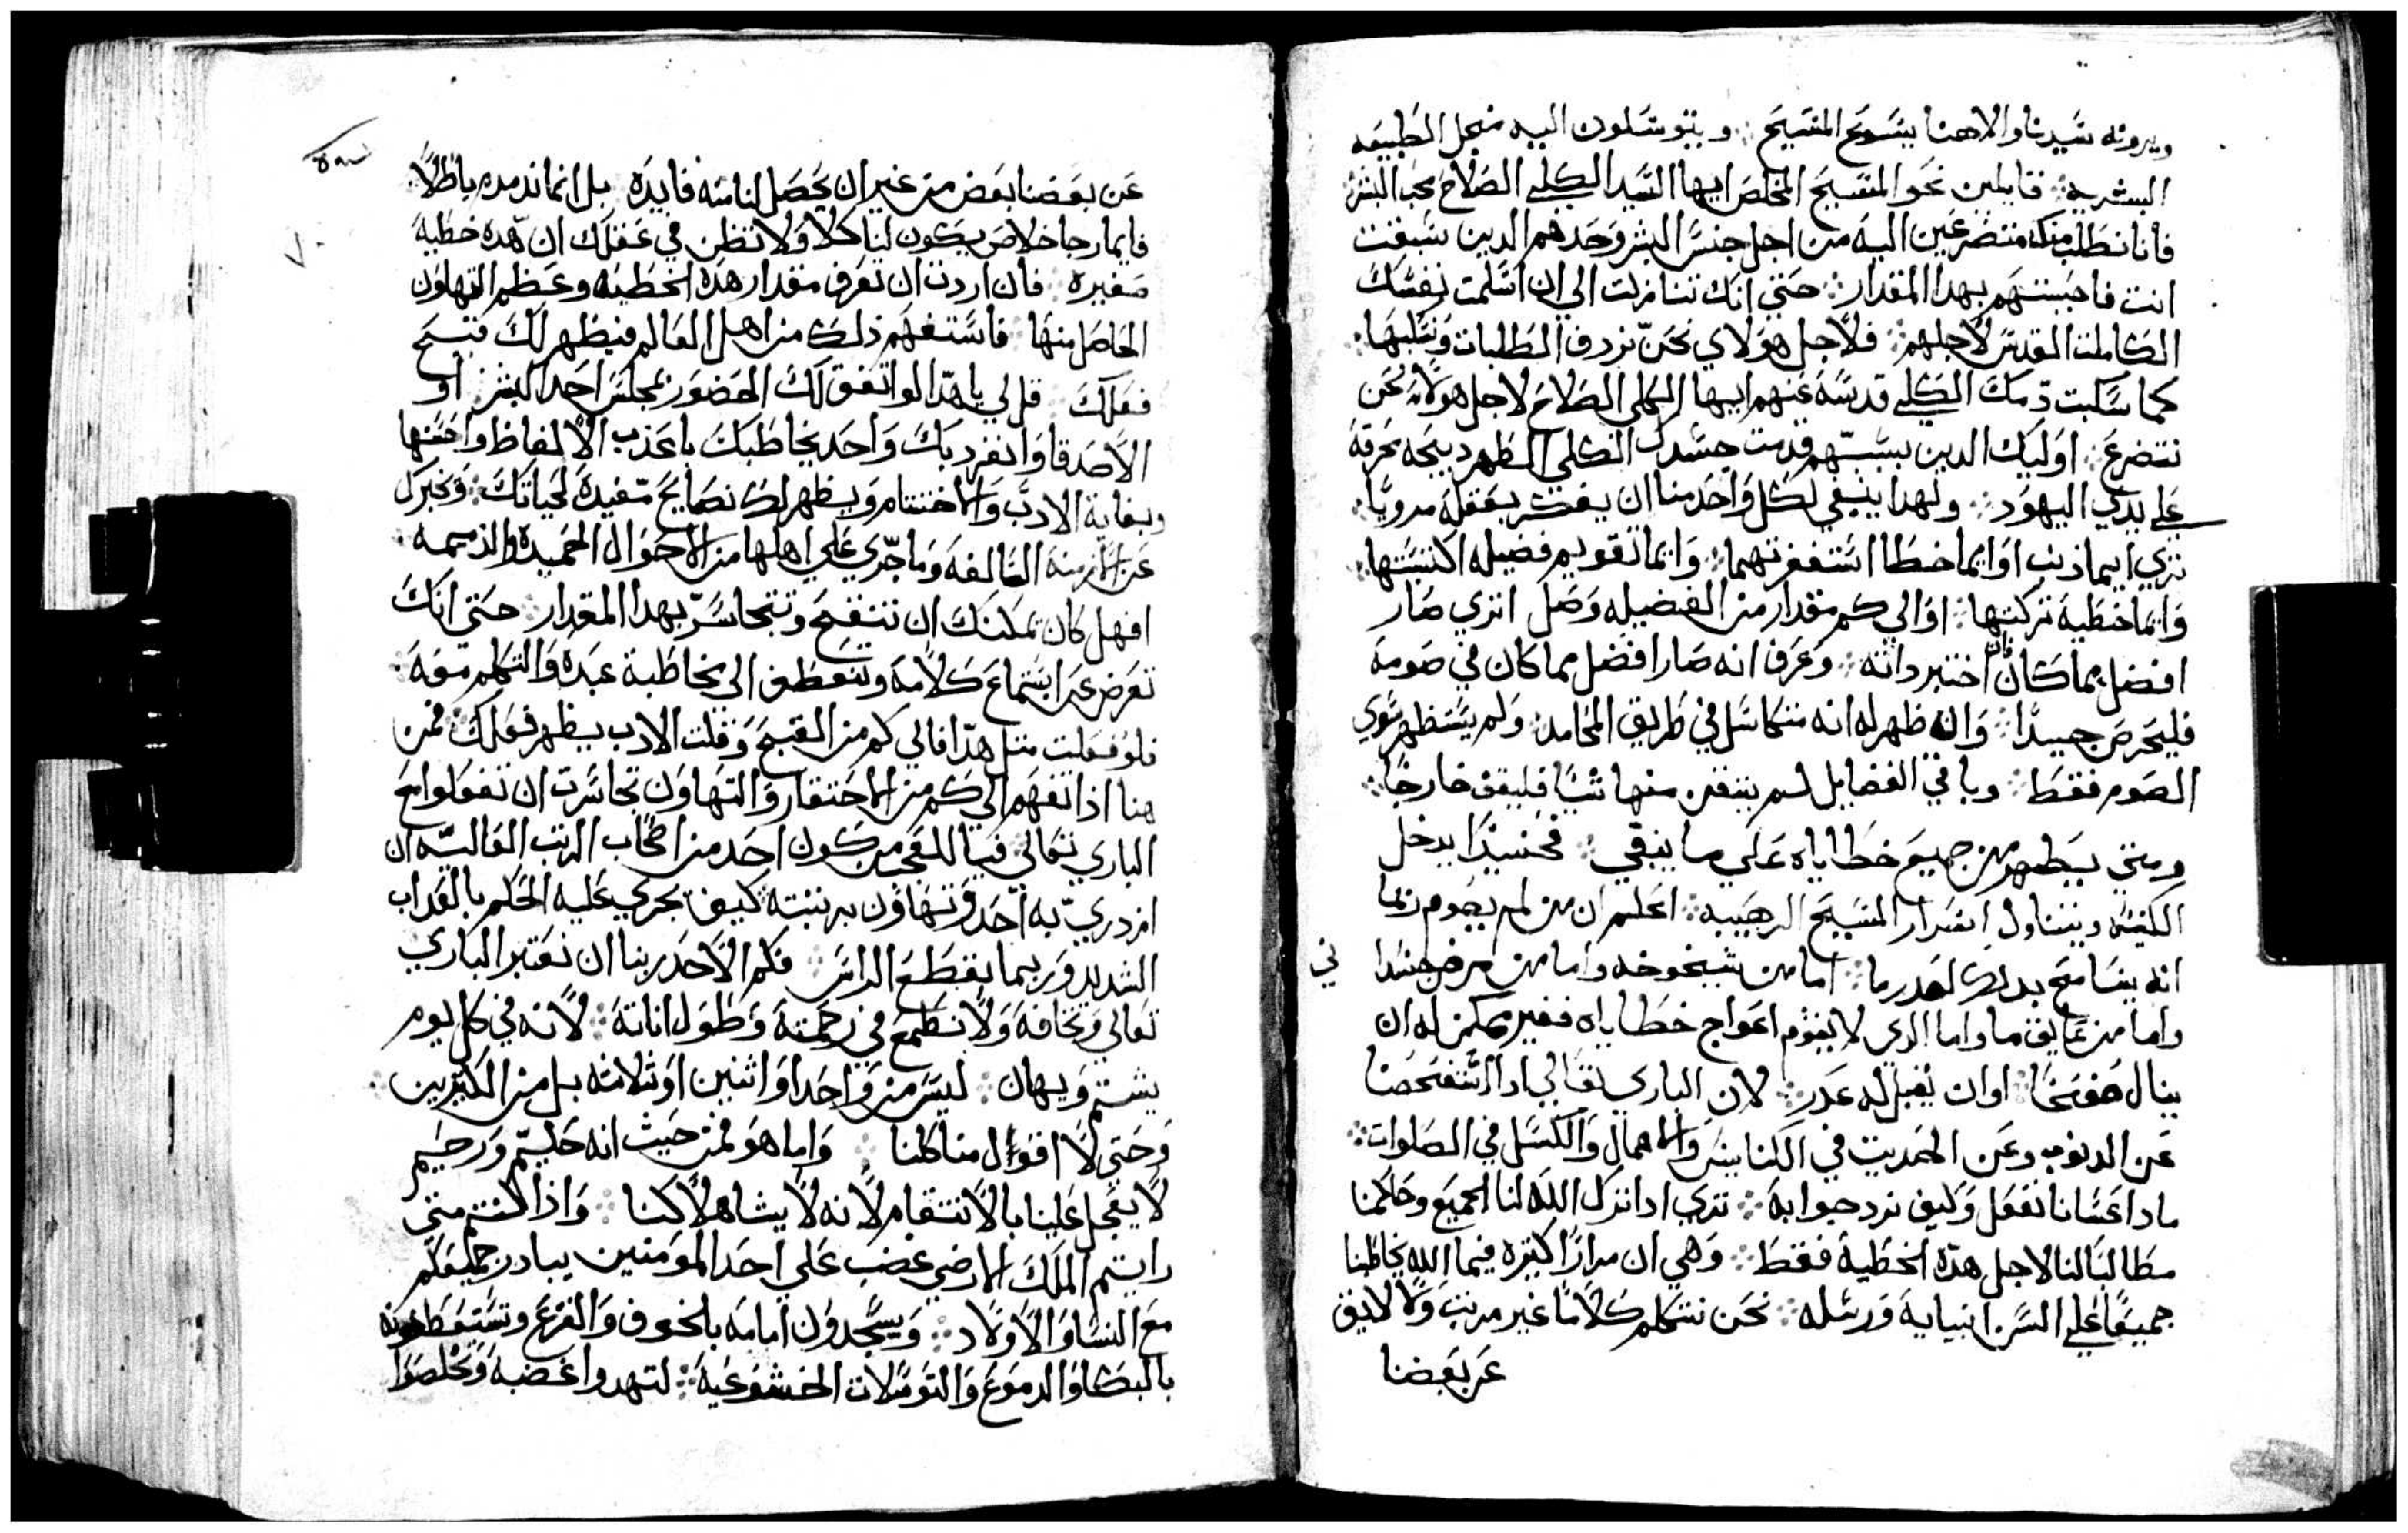 ويرونه سيدنا والاهنا يسوع المسيح ويتوسلون اليه منجل الطبيعه
البشريه قايلين نحو المسيح المخلص ايها السيد الكلي الصلاح محب البشر
فاننا نطلب منك متضرعين اليه من اجل جنس البشر وحدهم الدين سبقت
انت فاحببتهم بهدا المقدار حتي انك تنازلت الي ان اسلمت نفسك
الكاملت القدس لاجلهم فلاجل هولاي نحن نزرف الطلبات ونسلبها
كما سكبت دمك الكلي قدسه عنهم ايها الكلي الصلاح لاجل هولاء نحن
نتضرع اوليك الدين بسببهم قدمت جسدك الكلي الطهر دبيحه محرقه
علي يدي اليهود ولهدا ينبغي لكل واحد منا ان يفكر بعقله مرويا
تري ايما ذنب او ايما خطا استغفرتهما وايما تقويم فضيله اكتسبتها
وايما خطية تركتها او الي كم مقدار من الفضيله وصل اتري صار
افضل مما كان فان اختبر داته وعرف انه صار افضل مما كان في صومه
فليحرص جيدا وان ظهر له انه متكاسل في طريق المحامد ولم يستظهر سوي
الصوم فقط وباقي الفضايل لم يتقن منها شيا فليقف خارجا
ومتي يطهر من جميع خطاياه علي ما ينبغي فحينيدا يدخل
الكنيسه ويتناول اسرار المسيح الرهيبه اعلم ان من لم يصوم ربما
انه يتسامح بدلك لعدر ما اما من شيخوخه واما من مرض جسدا
ني
واما من عايق ما واما الدي لا يقوم اعواج خطاياه فغير ممكن له ان
ينال صفحا او ان يقبل له عدر لان الباري تعالي ادا استفحصنا
عن الدنوب وعن الحديت في الكنايس والاهمال والكسل في الصلوات
مادا عسانا نفعل وكيف نرد جوابه تري ادا ترك الله لنا الجميع وحاكمنا
مطالبا لنا لاجل هده الخطية فقط وهي ان مرارا كتيره فيما الله يخاطبنا
جميعا علي السن انبيايه ورسله نحن نتكلم كلاما غير مرتب ولا لايق
عن بعضنا
عن بعضنا بعض من غير ان يحصل لنا منه فايده بل انما ندمدم باطلا
فايما رجا خلاص يكون لنا كلا ولا تظن في عقلك ان هده خطية
صغيره فان اردت ان تعرف مقدار هده الخطيه وعظم التهاون
الحاصل منها فاستفهم ذلك من اهل العالم فيظهر لك قبح
فعلك قل لي يا هدا لو اتفق لك الحضور بمجلس احد البشر او
الاصدقا وانفرد بك واحد يخاطبك باعذب الالفاظ واحسنها
وبغاية الادب والاختشام ويظهر لك نصايح مفيدة لحياتك وبخبرك
عن الازمنه السالفه وما جري علي اهلها من الاحوال الحميده والذميمه
افهل كان يمكنك ان تتقح وتتجاسر بهدا المقدار حتي انك
تعرض عن استماع كلامه وتتعطف الي مخاطبة عبده والتكلم معه
فلو فعلت متل هدا فالي كم من القبح وقلت الادب يظهر فعلك فمن
هنا ادا تفهم الي كم من الاحتقار والتهاون تجاسرت ان تفعلوا مع
الباري تعالي فيا للعجب كون احد من اصحاب الرتب العاليه ان
ازدري به احد وتهاون برتبته كيف يجري عليه الحكم بالعداب
الشديد وربما بقطع الراس فكم الاحدر بنا ان نعتبر الباري
تعالي ونخافه ولا نطمع في رحمته وطول اناته لانه في كل يوم
يشتم ويهان ليس من واحدا او اثنين او ثلاثه بل من الكتيرين
وحتي لا اقول منا كلنا واما هو فمن حيث انه حليم ورحيم
لا يعجل علينا بالانتقام لانه لا يشا هلاكنا واذا كنتم متي
رايتم الملك الارضي غضب علي احد المومنين يبادر جميعكم
مع النسا والاولاد ويسجدون امامه بالخوف والفزع وتستعطفونه
بالبكا والدموع والتوسلات الخشوعيه لتهدوا غضبه وتخلصوا